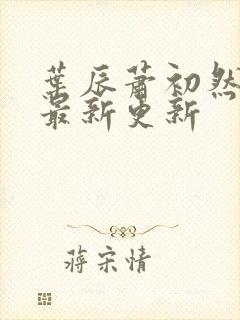 葉辰蕭初然
最新更新
蔣宋情